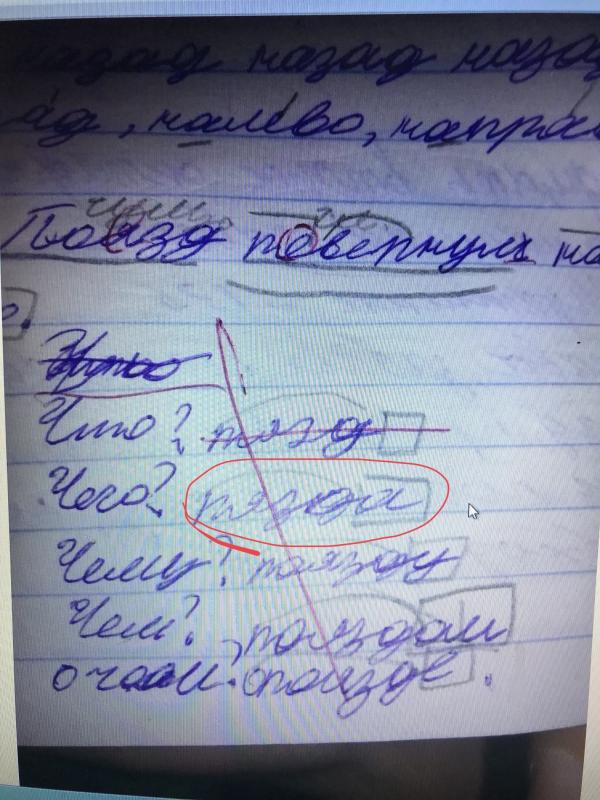 назад назад наза
ад, налево, напра
Поезд повернул на
Что? поязд
Чего? пязда
Чему? поязду
Чем? пояздом
о чём? о поязде.